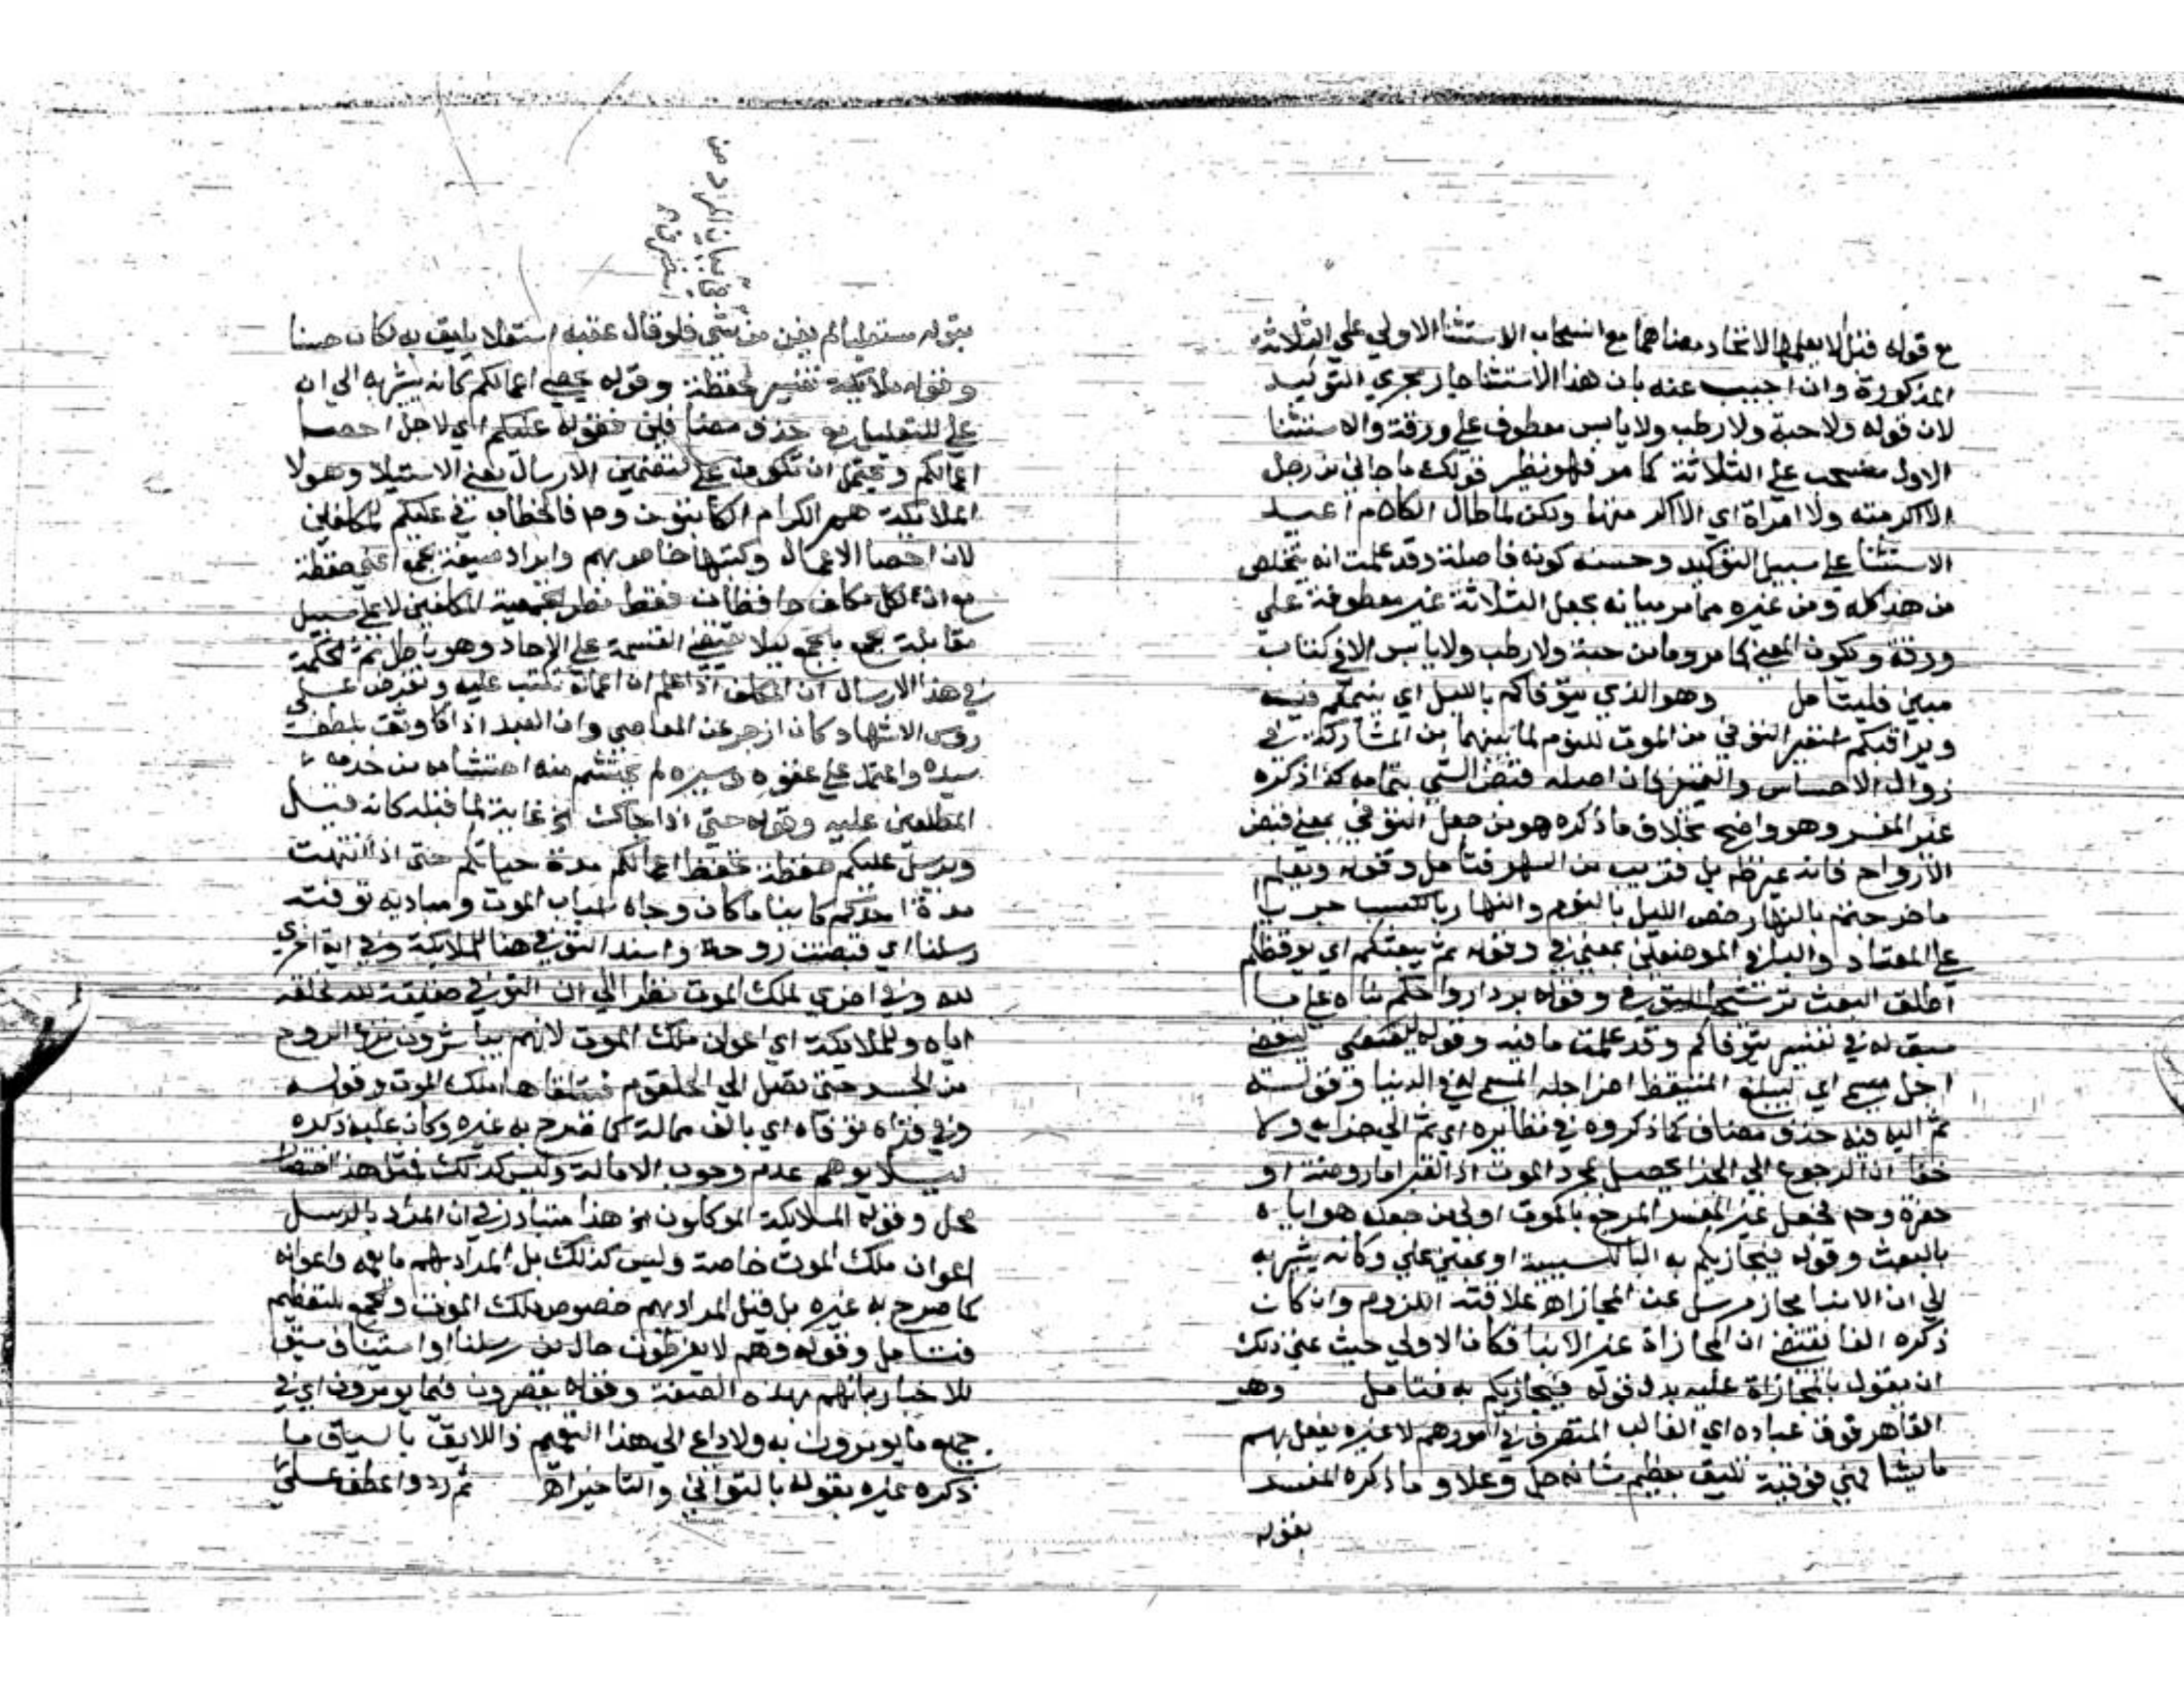 مع قوله قبل الا يعلمها لاتحاد معناهما مع انسحاب الاستثنا الاولي علي الثلاثة
المذكورة وان اجيب عنه بان هذا الاستثنا جار مجري التوكيد
لان قوله ولا حبة ولا رطب ولا يابس معطوف علي ورقة والاستثنا
الاول منسحب علي الثلاثة كما مر فهو نظير قولك ما جاني من رجل
الا اكرمته ولا امراة اي الا اكرمتها ولكن لما طال الكلام اعيد
الاستثنا علي سبيل التوكيد وحسنه كونه فاصلة وقد علمت انه يتخلص
من هذا كله ومن غيره مما مر بيانه بجعل الثلاثة غير معطوفة علي
ورقة ويكون المعني كما مر وما من حبة ولا رطب ولا يابس الا في كتاب
مبين فليتامل وهو الذي يتوفاكم بالليل اي ينيمكم فيه
ويراقبكم استعير التوفي من الموت للنوم لما بينهما من المشاركة في
زوال الاحساس والتمييز فان اصله قبض الشي بتمامه كذا ذكره
غير المفسر وهو واضح بخلاف ما ذكره هو من جعل التوفي بمعني قبض
الارواح فانه غير ظاهر بل قريب من السهو فتامل وقوله ويعلم
ما جرحتم بالنهار خص الليل بالنوم والنهار بالكسب جريا
علي المعتاد والبا في الموضعين بمعني في وقوله ثم يبعثكم اي يوقظكم
اطلق البعث ترشيحا للتوفي وقوله برد ارواحكم بناه علي ما
سبق له في تفسير يتوفاكم وقد علمت ما فيه وقوله ليقضي
اجل مسمي اي ليبلغ المتيقظ اخر اجله المسمي له في الدنيا وقوله
ثم اليه فيه حذف مضاف كما ذكروه في نظايره اي ثم الي جزايه ولا
خفا ان الرجوع الي الجزا يحصل بمجرد الموت اذ القبر اما روضة او
حفرة وحم فجعل غير المفسر المرجع بالموت اولي من جعله هو اياه
بالبعث وقوله فيجازيكم به البا للسببية او بمعني علي وكانه يشير به
الي ان الانبا مجاز مرسل عن المجازاة علاقته اللزوم وان كان
ذكره الفا يقتضي ان المجازاة غير الانبا فكان الاولي حيث عني ذلك
ان يقول بالمجازاة عليه بدل قوله فيجازيكم به فتامل وهو
القاهر فوق عباده اي الغالب المتصرف في امورهم لا غيره يفعل بهم
ما يشا فهي فوقية تليق بعظيم شانه جل وعلا وما ذكره المفسر
بقوله
بقوله مستعليا لم يغن من شي فلو قال عقبه استعلا يليق به لكان حسنا
وقوله ملايكة تفسير لحفظة وقوله تحصي اعمالكم كانه يشير به الي ان
علي للتعليل مع حذف مضافين فقوله عليكم اي لاجل احصا
اعمالكم ويحتمل ان تكون علي لتضمين الارسال معني الاستيلا وهولا
الملايكة هم الكرام الكاتبون وحم فالخطاب في عليكم للمكلفين
لان احصا الاعمال وكتبها خاص بهم وايراد صيغة جمع اعني حفظة
مع ان لكل مكلف حافظان فقط نظرا لجمعية المكلفين لا علي سبيل
مقابلة جمع بالجمع ليلا يقتضي القسمة علي الاحاد وهو باطل ثم الحكمة
في هذا الارسال ان المكلف اذا علم ان اعماله تكتب عليه وتعرض علي
روس الاشهاد كان ازجر عن المعاصي وان العبد اذا وثق بلطف
سيده واعتمد علي عفوه وستره لم يحتشم منه احتشامه من خدمه
المطلعين عليه وقوله حتي اذا جاك الخ غاية لما قبله كانه قيل
ويرسل عليكم حفظة تحفظ اعمالكم مدة حياتكم حتي اذا انتهت
مدة احدكم كاينا ما كان وجاه اسباب الموت ومباديه توفته
رسلنا اي قبضت روحه واسند التوفي هنا للملايكة وفي اية اخري
لله وفي اخري لملك الموت نظرا الي ان التوفي حقيقة لله لخلقه
اياه وللملايكة اي اعوان ملك الموت لانهم يباشرون نزع الروح
من الجسد حتي تصل الي الحلقوم فيتلقاها ملك الموت وقوله
وفي قراة توفاه اي بالف ممالة كما صرح به غيره وكان عليه ذكره
ليلا يوهم عدم وجوب الامالة وليس كذلك فمثل هذا اختصار
مخل وقوله الملايكة الموكلون الخ هذا متبادر في ان المراد بالرسل
اعوان ملك الموت خاصة وليس كذلك بل المراد بهم ما يعمه واعوانه
كما صرح به غيره بل قيل المراد بهم خصوص ملك الموت والجمع للتعظيم
فتامل وقوله وهم لا يفرطون حال من رسلنا او استيناف سيق
للاخبار بانهم بهذه الصفة وقوله يقصرون فيما يومرون اي في
جميع ما يومرون به ولا داعي الي هذا التعميم فاللايق بالسياق ما
ذكره غيره بقوله بالتواني والتاخير اه ثم ردوا عطف علي